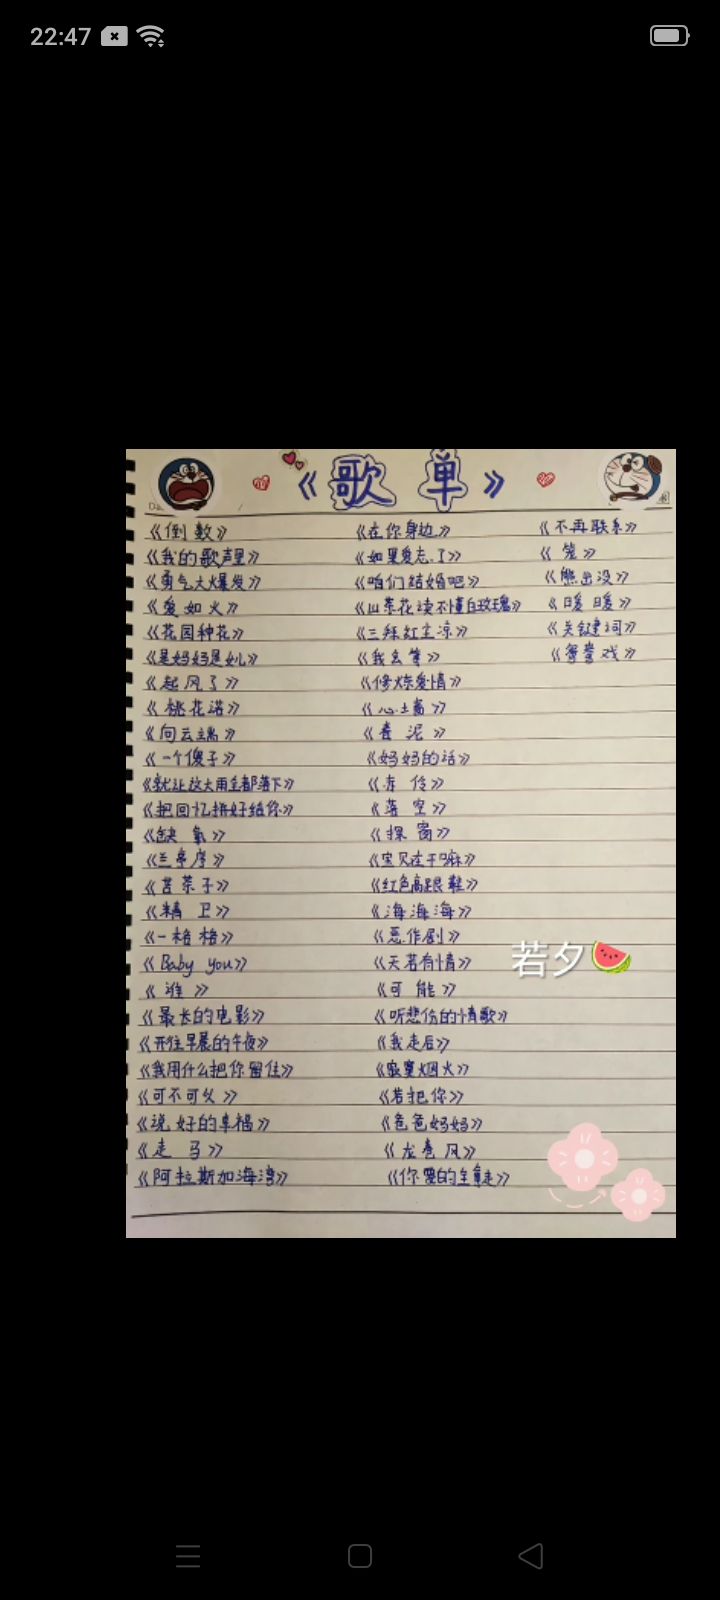 22:47
《歌单》
《倒数》
《我的歌声里》
《勇气大爆发》
《爱如火》
《花园种花》
《是妈妈是女儿》
《起风了》
《桃花诺》
《向云端》
《一个傻子》
《就让这大雨全都落下》
《把回忆拼好给你》
《缺氧》
《兰亭序》
《苦茶子》
《精卫》
《一格格》
《Baby you》
《谁》
《最长的电影》
《开往早晨的午夜》
《我用什么把你留住》
《可不可以》
《说好的幸福》
《走马》
《阿拉斯加海湾》
《在你身边》
《如果爱忘了》
《咱们结婚吧》
《山茶花读不懂白玫瑰》
《三拜红尘凉》
《我玄等》
《修炼爱情》
《心上高》
《春泥》
《妈妈的话》
《赤伶》
《落空》
《探窗》
《宝贝在干嘛》
《红色高跟鞋》
《海海海》
《恶作剧》
《天若有情》
《可能》
《听悲伤的情歌》
《我走后》
《寂寞烟火》
《若把你》
《爸爸妈妈》
《龙卷风》
《你要的全拿走》
《不再联系》
《笼》
《熊出没》
《暖暖》
《关键词》
《鸳鸯戏》
若夕